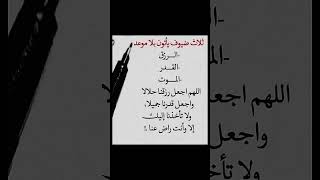 ثلاث ضيوف يأتون بلا موعد
-الرزق
-القدر
-الموت
اللهم اجعل رزقنا حلالا
واجعل قدرنا جميلا،
ولا تأخذنا إليك
إلا وأنت راض عنا